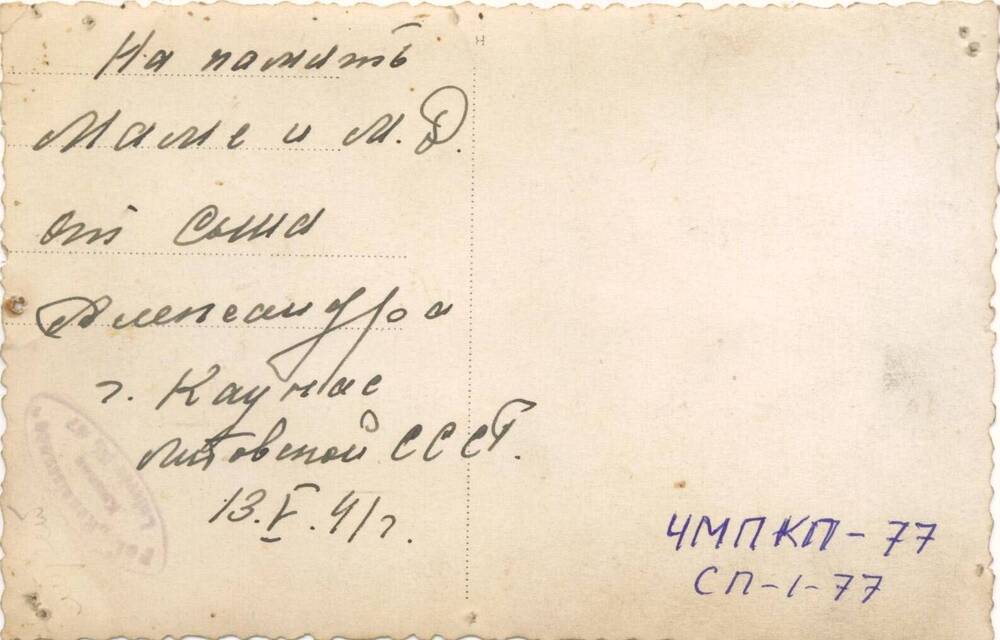 На память
Маме и М.Д.
от Сына
Александра
г. Каунас
Литовской СССР.
13.V.41 г.
ЧМПКП-77
СП-1-77